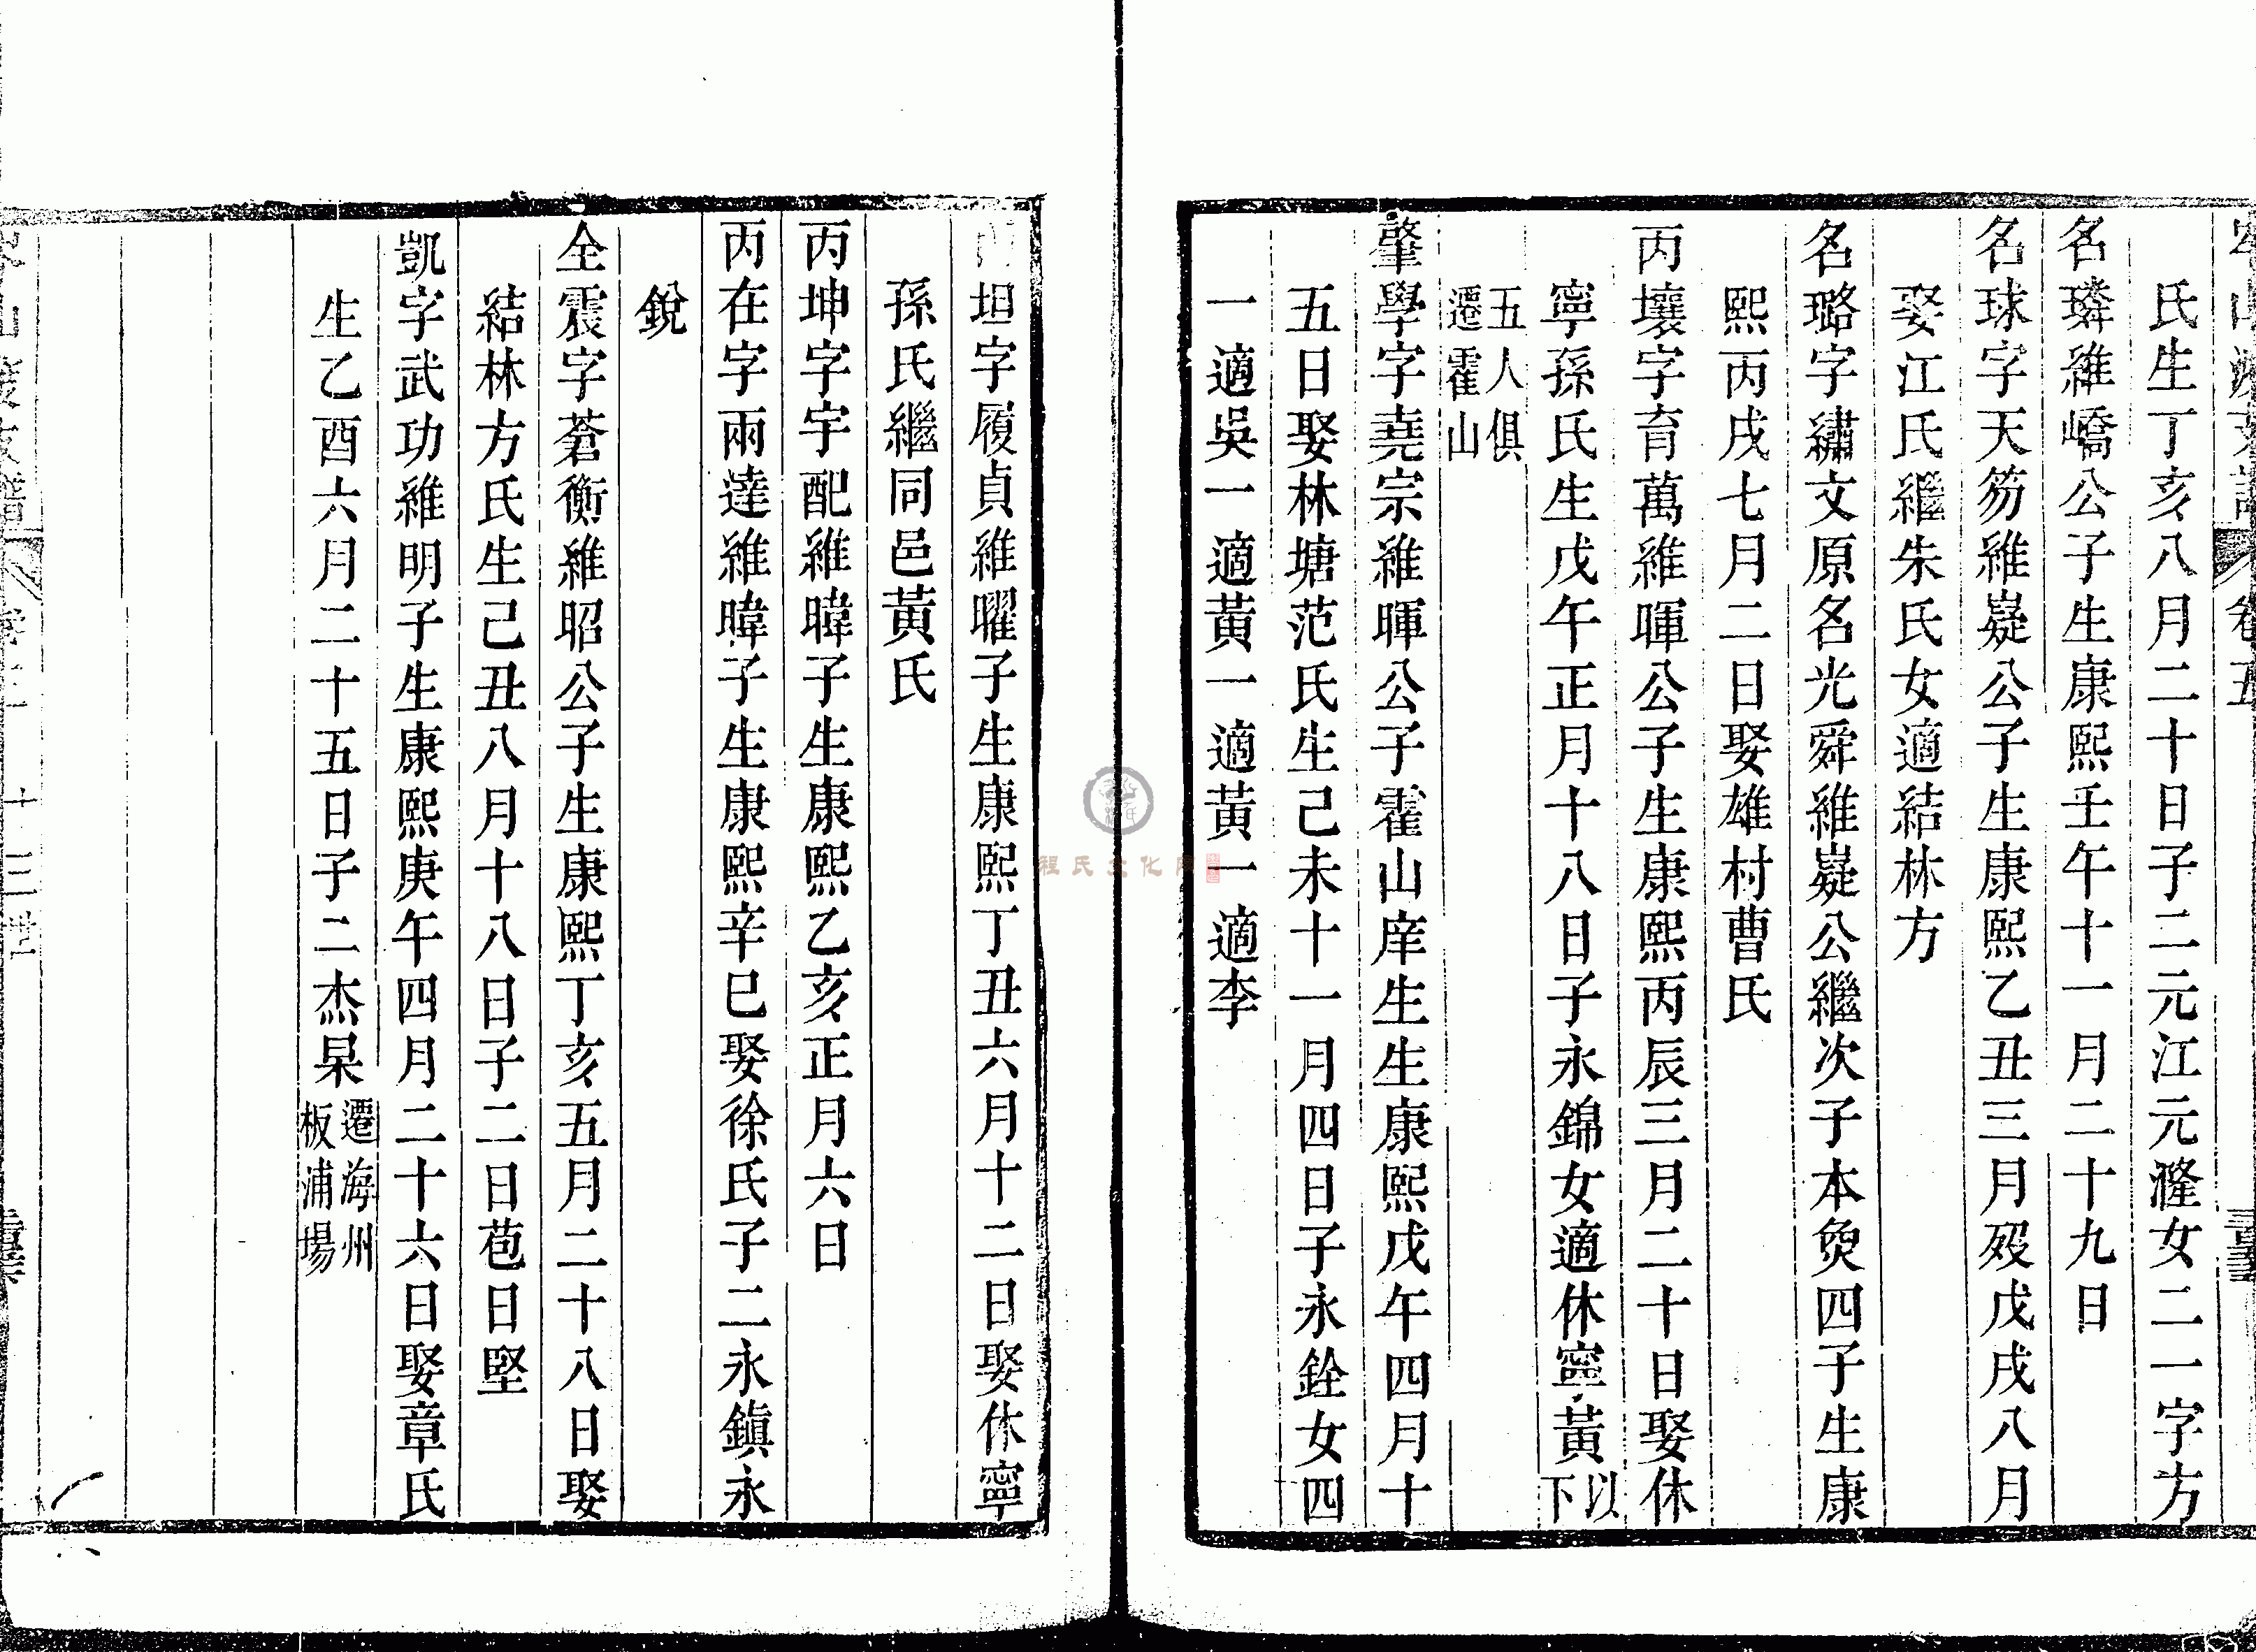 氏生丁亥八月二十日子二元江元漋女二一字方
名璘維嶠公子生康熙壬午十一月二十九日
名球字天笏維嶷公子生康熙乙丑三月歿戊戌八月
娶江氏繼朱氏女適結林方
名璐字繡文原名光舜維嶷公繼次子本奐四子生康
熙丙戌七月二日娶雄村曹氏
丙壤字育萬維暉公子生康熙丙辰三月二十日娶休
寧孫氏生戊午正月十八日子永錦女適休寧黃以下
五人俱遷霍山
肇學字堯宗維暉公子霍山庠生生康熙戊午四月十
五日娶林塘范氏生己未十一月四日子永銓女四
一適吳一適黃一適黃一適李
坦字履貞維曜子生康熙丁丑六月十二日娶休寧
孫氏繼同邑黃氏
丙坤字宇配維暐子生康熙乙亥正月六日
丙在字兩達維暐子生康熙辛巳娶徐氏子二永鎮永
銳
全震字蒼衡維昭公子生康熙丁亥五月二十八日娶
結林方氏生己丑八月十八日子二日苞日堅
凱字武功維明子生康熙庚午四月二十六日娶章氏
生乙酉六月二十五日子二杰杲遷海州板浦場
十三世
程氏文化